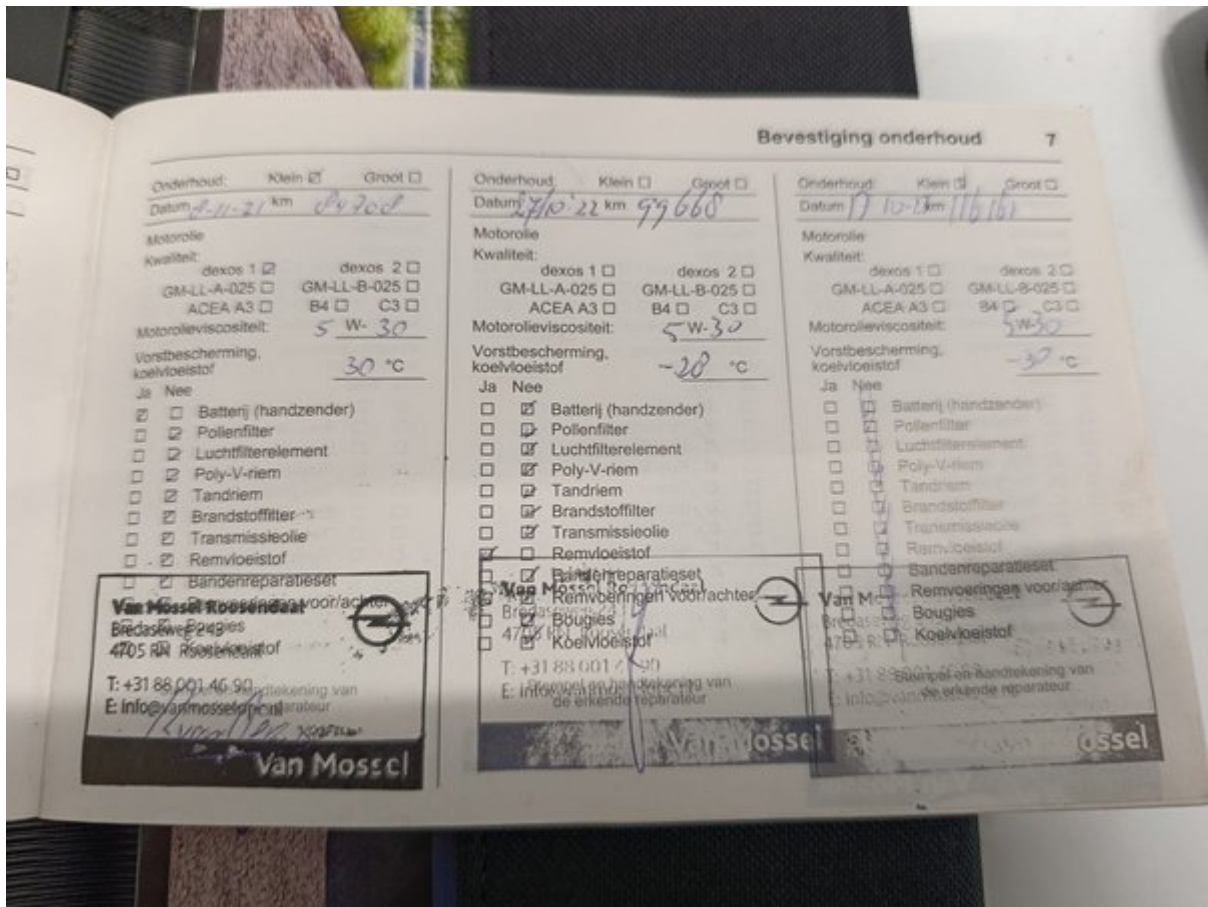 Bevestiging onderhoud 7
Onderhoud: Klein ☑ Groot ☐
Datum 8-11-21 km 84708
Motorolie
Kwaliteit:
dexos 1 ☑ dexos 2 ☐
GM-LL-A-025 ☐ GM-LL-B-025 ☐
ACEA A3 ☐ B4 ☐ C3 ☐
Motorolieviscositeit: 5 W- 30
Vorstbescherming,
koelvloeistof 30 °C
Ja Nee
☑ ☐ Batterij (handzender)
☐ ☑ Pollenfilter
☐ ☑ Luchtfilterelement
☐ ☑ Poly-V-riem
☐ ☑ Tandriem
☐ ☑ Brandstoffilter
☐ ☑ Transmissieolie
☐ ☑ Remvloeistof
☐ ☑ Bandenreparatieset
Remvoeringen voor/achter
Bougies
Koelvloeistof
Stempel en handtekening van
de erkende reparateur
Van Mossel Roosendaal
Bredaseweg 243
4705 RN Roosendaal
T: +31 88 001 46 90
E: info@vanmosselopel.nl
Van Mossel
Onderhoud: Klein ☐ Groot ☐
Datum 27/10-22 km 99668
Motorolie
Kwaliteit:
dexos 1 ☐ dexos 2 ☐
GM-LL-A-025 ☐ GM-LL-B-025 ☐
ACEA A3 ☐ B4 ☐ C3 ☐
Motorolieviscositeit: 5 W-30
Vorstbescherming,
koelvloeistof -28 °C
Ja Nee
☐ ☑ Batterij (handzender)
☐ ☑ Pollenfilter
☐ ☑ Luchtfilterelement
☐ ☑ Poly-V-riem
☐ ☑ Tandriem
☐ ☑ Brandstoffilter
☐ ☑ Transmissieolie
☑ ☐ Remvloeistof
☐ ☑ Bandenreparatieset
☐ ☑ Remvoeringen voor/achter
☐ ☑ Bougies
☐ ☑ Koelvloeistof
Stempel en handtekening van
de erkende reparateur
Van Mossel Roosendaal
Bredaseweg 24
4705 RN Roosendaal
T: +31 88 001 4 90
Van Mossel
Onderhoud: Klein ☑ Groot ☐
Datum 17 10-23 km 116161
Motorolie
Kwaliteit:
dexos 1 ☐ dexos 2 ☐
GM-LL-A-025 ☐ GM-LL-B-025 ☐
ACEA A3 ☐ B4 ☐ C3 ☐
Motorolieviscositeit: 5W-30
Vorstbescherming,
koelvloeistof °C
Ja Nee
Batterij (handzender)
Pollenfilter
Luchtfilterelement
Poly-V-riem
Tandriem
Brandstoffilter
Transmissieolie
Remvloeistof
Bandenreparatieset
Remvoeringen voor/achter
Bougies
Koelvloeistof
Stempel en handtekening van
de erkende reparateur
Van
ossel